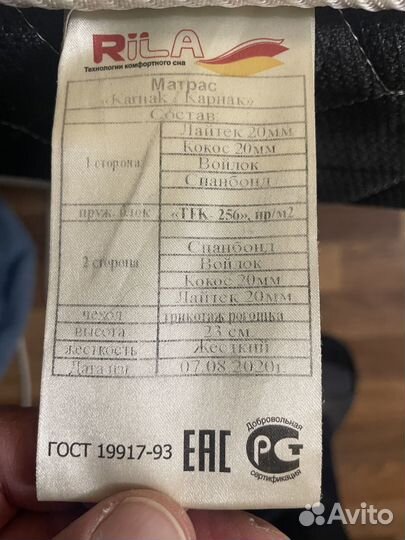 RiLA
Технологии комфортного сна
Матрас
«Karnak / Карнак»
Состав:
1 сторона
Лайтек 20мм
Кокос 20мм
Войлок
Спанбонд
пруж. блок «TFK- 256», пр/м2
2 сторона
Спанбонд
Войлок
Кокос 20мм
Лайтек 20мм
чехол трикотаж рогошка
высота 23 см.
жесткость Жесткий
Дата изг. 07.08.2020г.
ГОСТ 19917-93
EAC
Добровольная
PG
сертификация
Avito